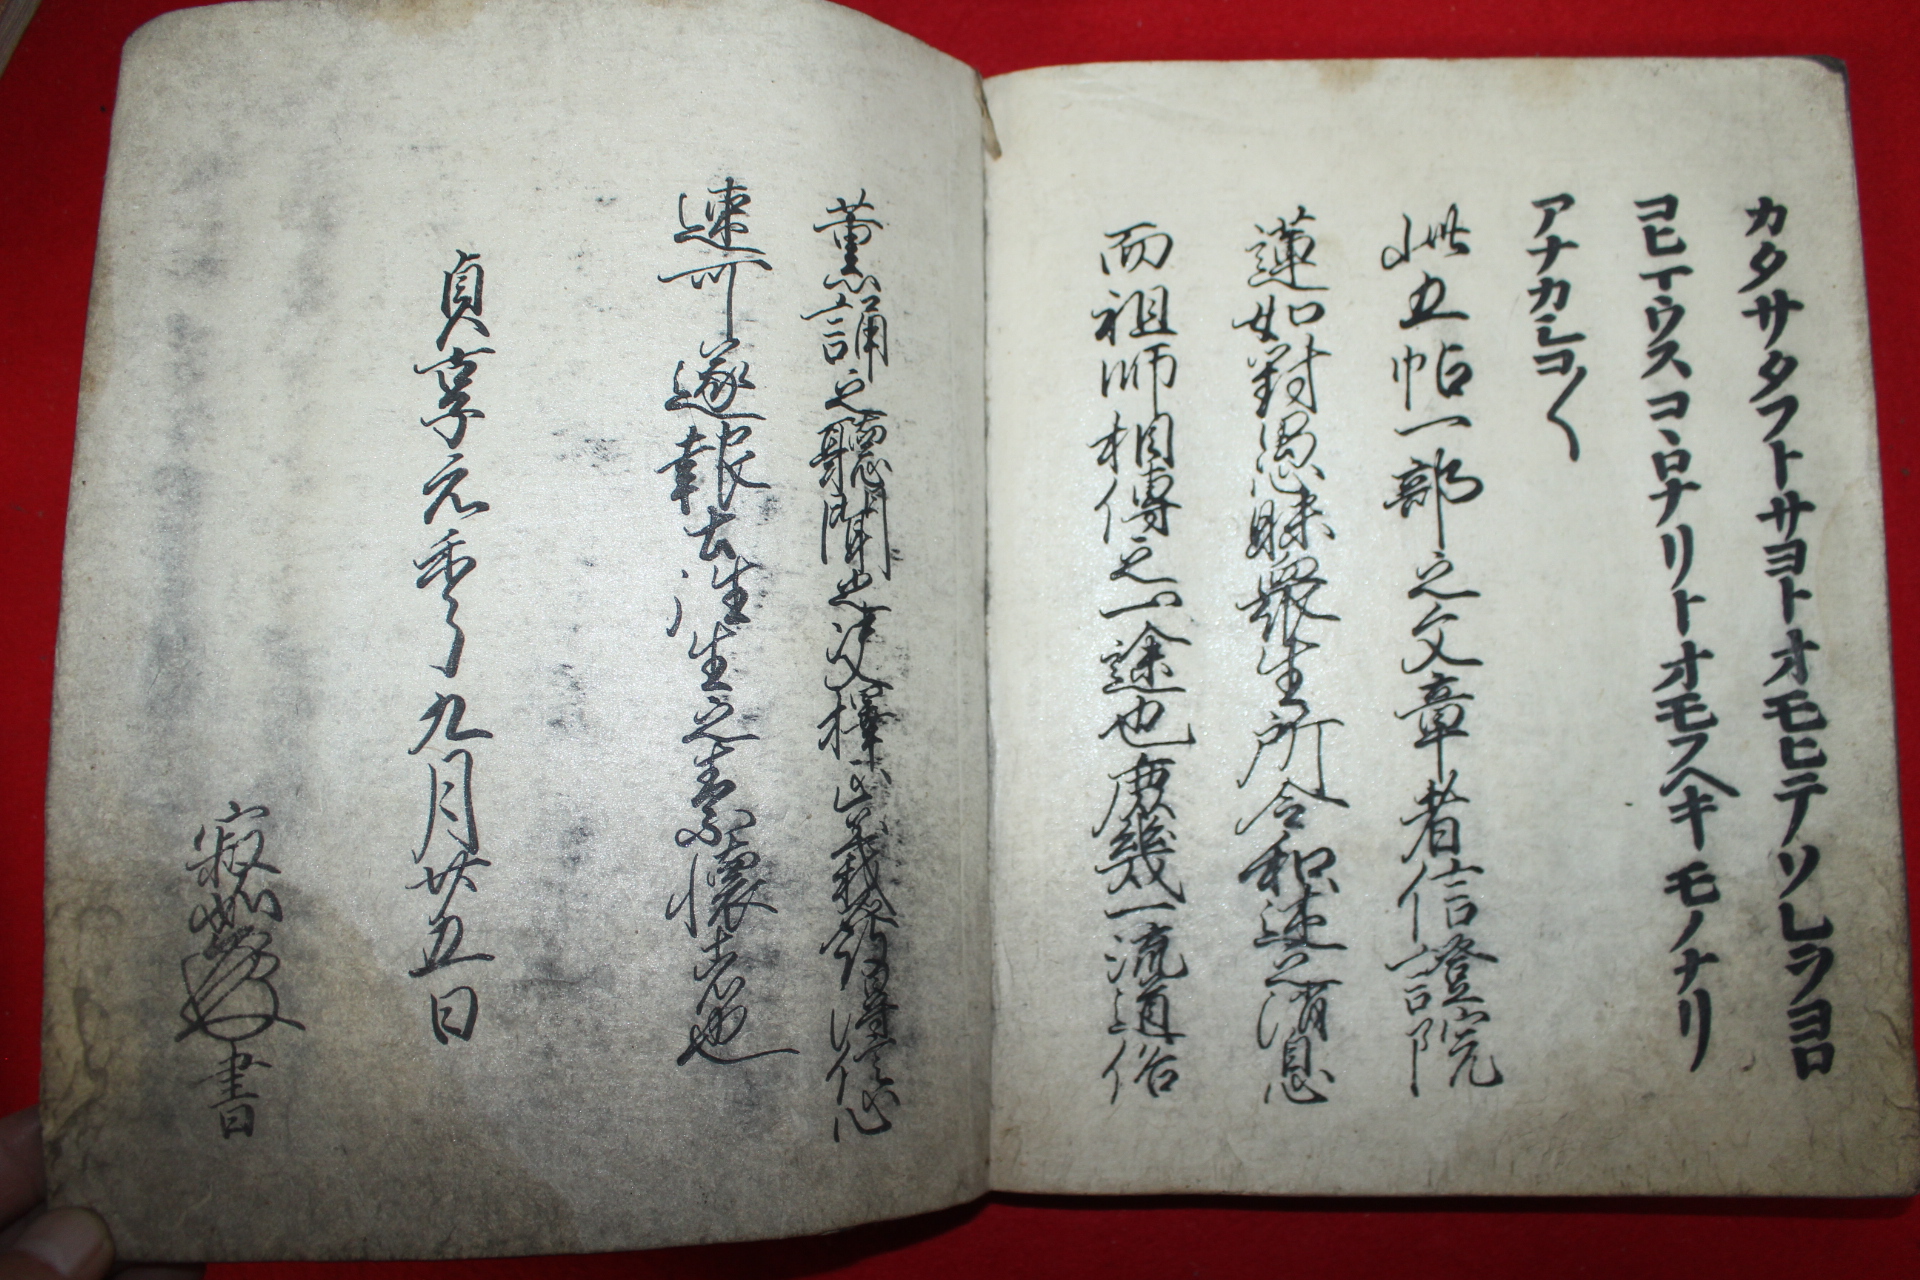 カタサタフトサヨトオモヒテソレラヨロ
コヒイウスコヽロナリトオモフヘキモノナリ
アナカシコ〱
此五帖一部之文章者信證院
蓮如對愚昧衆生所令和述之消息
而祖師相傳之一途也庶幾一流道俗
薫誦之聽聞之決擇正義發得信心
速可遂報土往生之素懷者也
貞享元季九月廿五日
寂如 書